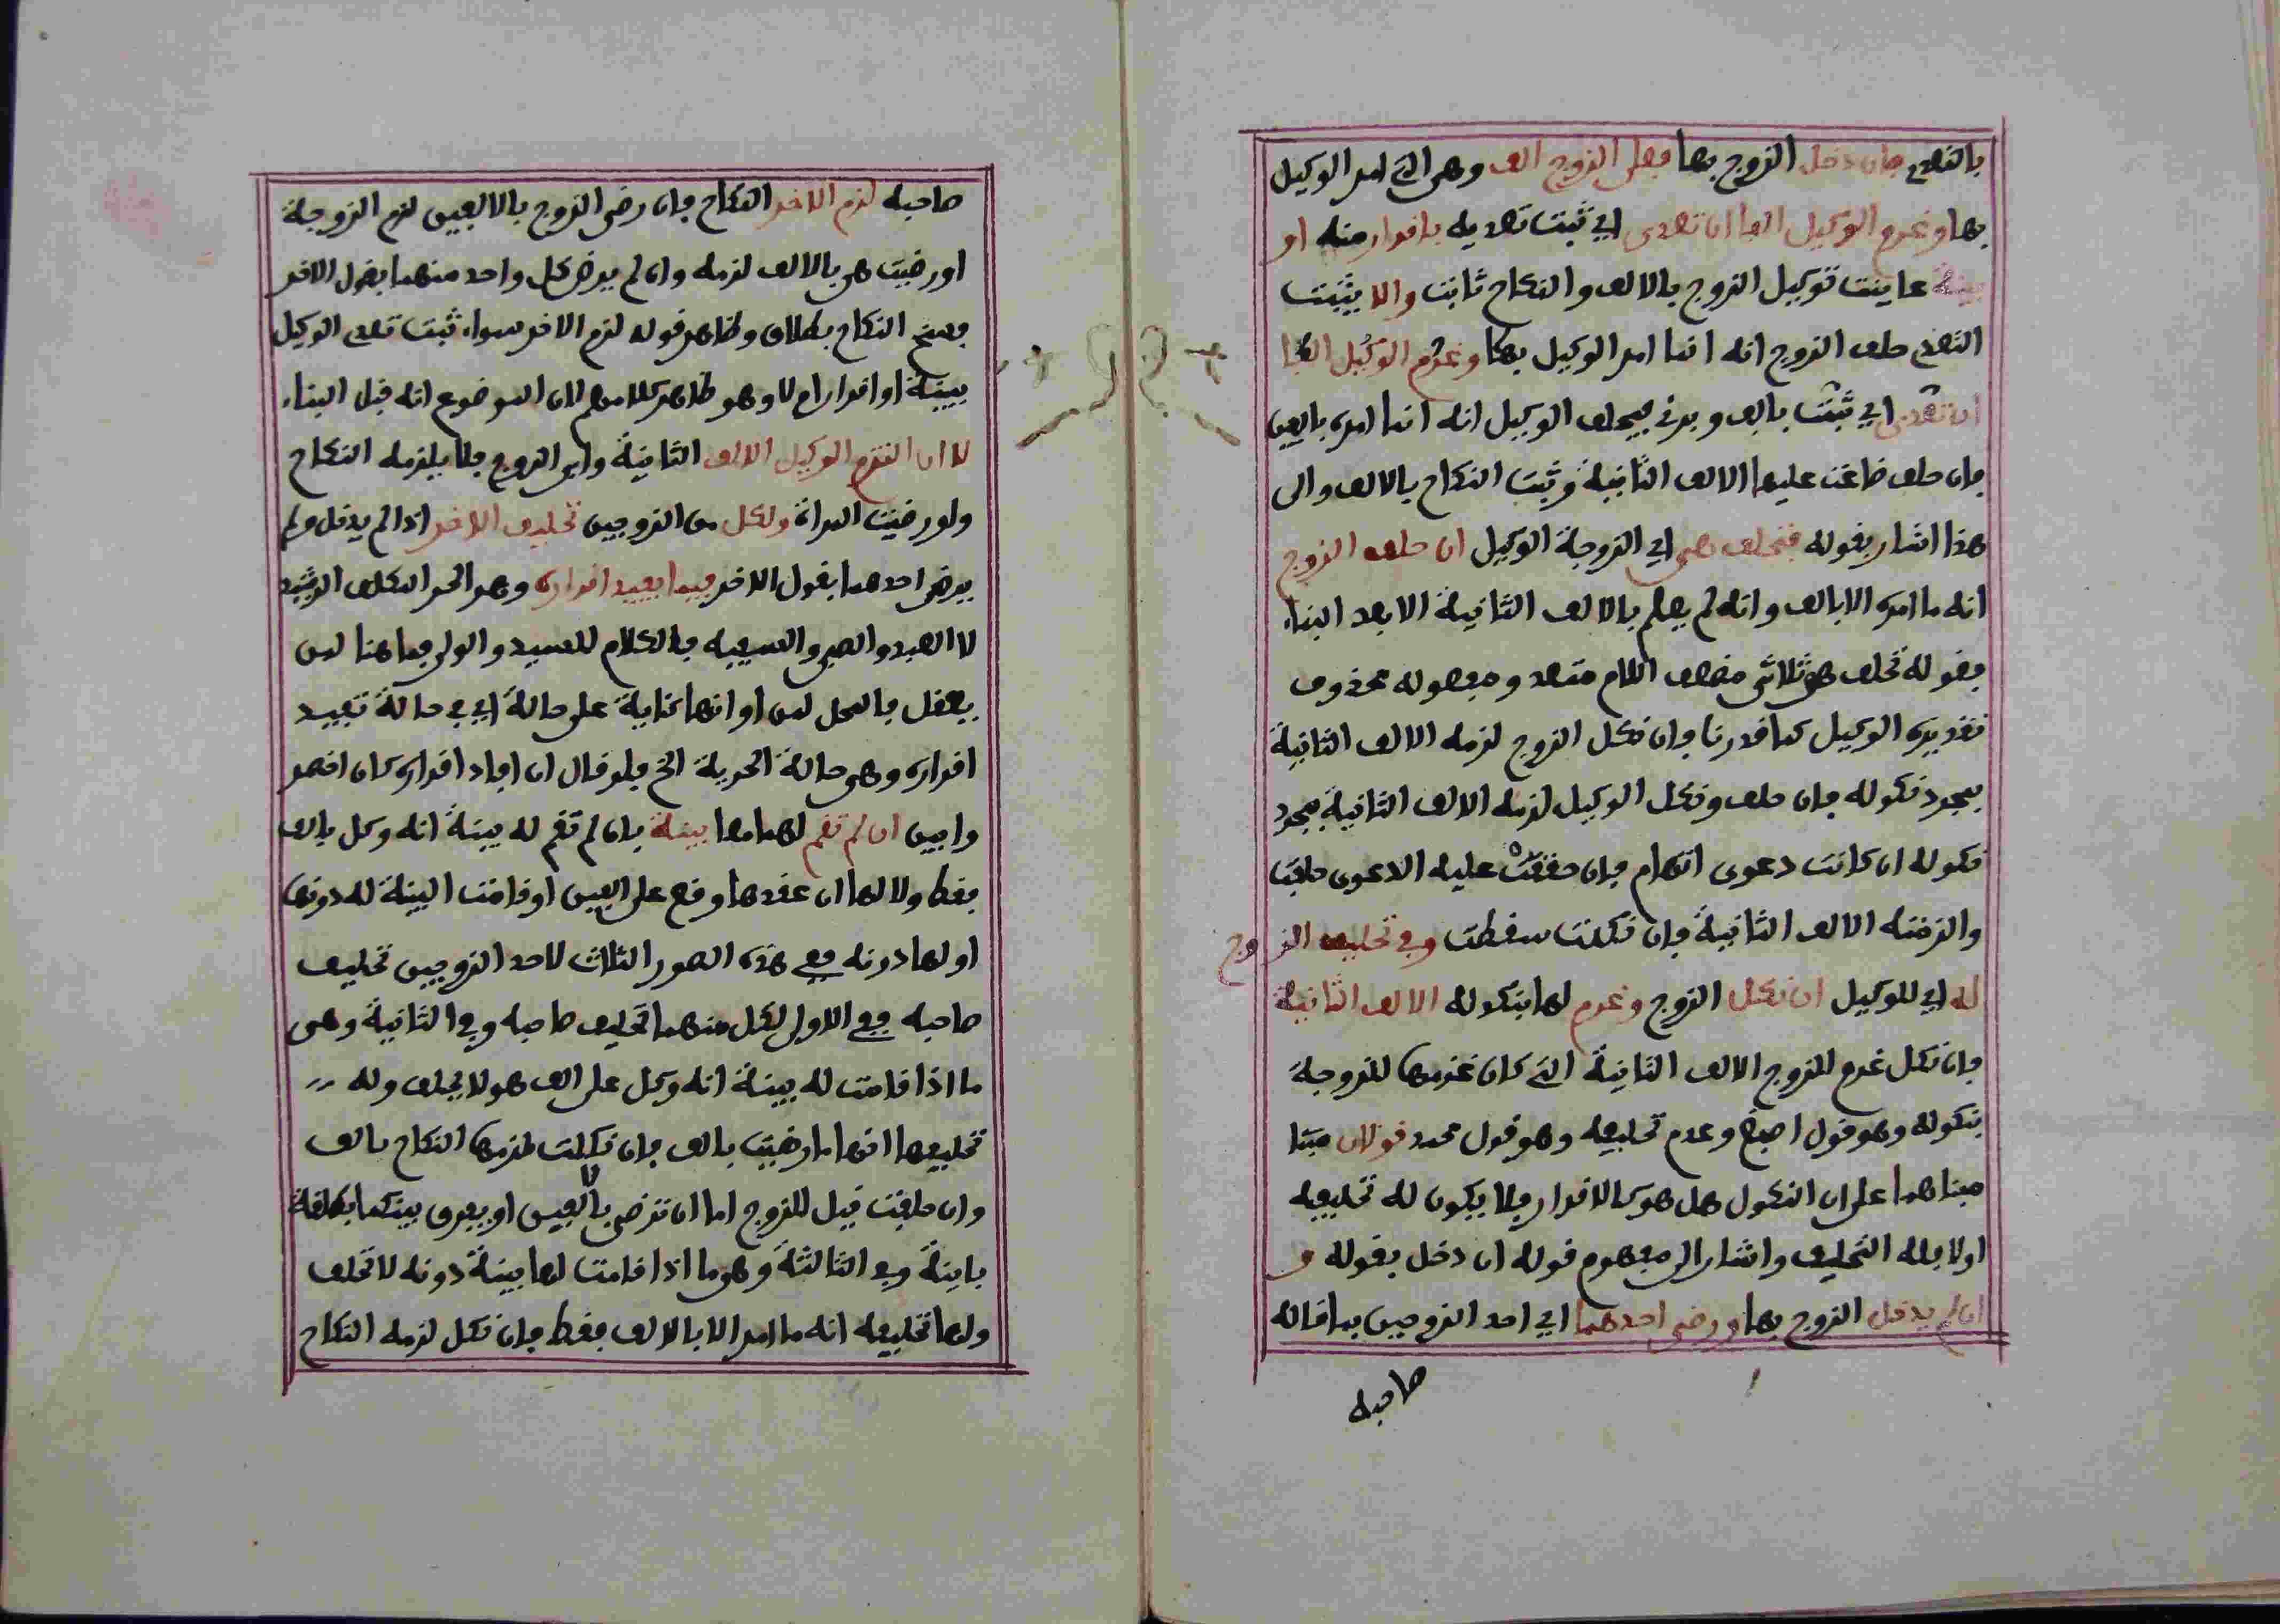 بالتعدي فان دخل الزوج بها فعلى الزوج الف وهي التي امر الوكيل
بها وغرم الوكيل الفا ان تعدى اي ثبت تعديه باقرار منه او
بينة عاينت توكيل الزوج بالالف والنكاح ثابت والا يثبت
التعدي حلف الزوج انه انما امر الوكيل بها وغرم الوكيل الفا
ان تعدى اي ثبت بالف وبرئ فيحلف الوكيل انه انما امره بالفين
فان حلف ضاعت عليها الالف الثانية وثبت النكاح بالالف والى
هذا اشار بقوله فتحلف هي اي الزوجة الوكيل ان حلف الزوج
انه ما امره الا بالف وانه لم يعلم بالالف الثانية الا بعد البناء
فقوله تحلف هي ثلاثي مضعف اللام متعد ومفعوله محذوف
تقديره الوكيل كما قدرنا فان نكل الزوج لزمه الالف الثانية
بمجرد نكوله فان حلف ونكل الوكيل لزمه الالف الثانية بمجرد
نكوله ان كانت دعوى اتهام فان حققت عليه الدعوى حلفت
والزمته الالف الثانية فان نكلت سقطت وفي تحليف الزوج
له اي للوكيل ان نكل الزوج وغرم لها بنكوله الالف الثانية
فان نكل غرم للزوج الالف الثانية التي كان غرمها للزوجة
بنكوله وهو قول اصبغ وعدم تحليفه وهو قول محمد قولان مبنا
مبناهما على ان النكول هل هو كالاقرار فلا يكون له تحليفه
اولا فله التحليف واشار الى مفهوم قوله ان دخل بقوله و
ان لم يدخل الزوج بها ورضي احدهما اي احد الزوجين بما قاله
صاحبه
صاحبه لزم الاخر النكاح فان رضي الزوج بالالفين لزم الزوجة
اورضيت هي بالالف لزمه وان لم يرض كل واحد منهما بقول الاخر
فسخ النكاح بطلاق وظاهر قوله لزم الاخر سواء ثبت تعدي الوكيل
ببينة او اقرار ام لا وهو ظاهر كلامهم لان الموضوع انه قبل البناء
لا ان التزم الوكيل الالف الثانية وابى الزوج فلا يلزمه النكاح
ولو رضيت المراة ولكل من الزوجين تحليف الاخر اذا لم يدخل ولم
يرض احدهما بقول الاخر فيما يفيد اقراره وهو الحر المكلف الرشيد
لا العبد والصبي والسفيه فالكلام للسيد والولي فما هنا لمن
يعقل فالمحل لمن او انها كناية على حالة اي في حالة تفيد
اقراره وهي حالة الحرية الخ فلو قال ان افاد اقراره كان اخصر
وابين ان لم تقم لهما معا بينة بان لم تقم له بينة انه وكل بالف
فقط ولا لها ان عقدها وقع على الفين او قامت البينة له دونها
اولها دونه ففي هذه الصور الثلاث لاحد الزوجين تحليف
صاحبه ففي الاولى لكل منهما تحليف صاحبه وفي الثانية وهي
ما اذا قامت له بينة انه وكل على الف هو لا يحلف وله
تحليفها انها ما رضيت بالف فان نكلت لزمها النكاح بالف
وان حلفت قيل للزوج اما ان ترضى بالفين او يفرق بينكما بطلقة
باينة وفي الثالثة وهو ما اذا قامت لها بينة دونه لا تحلف
ولها تحليفه انه ما امر الا بالالف فقط فان نكل لزمه النكاح